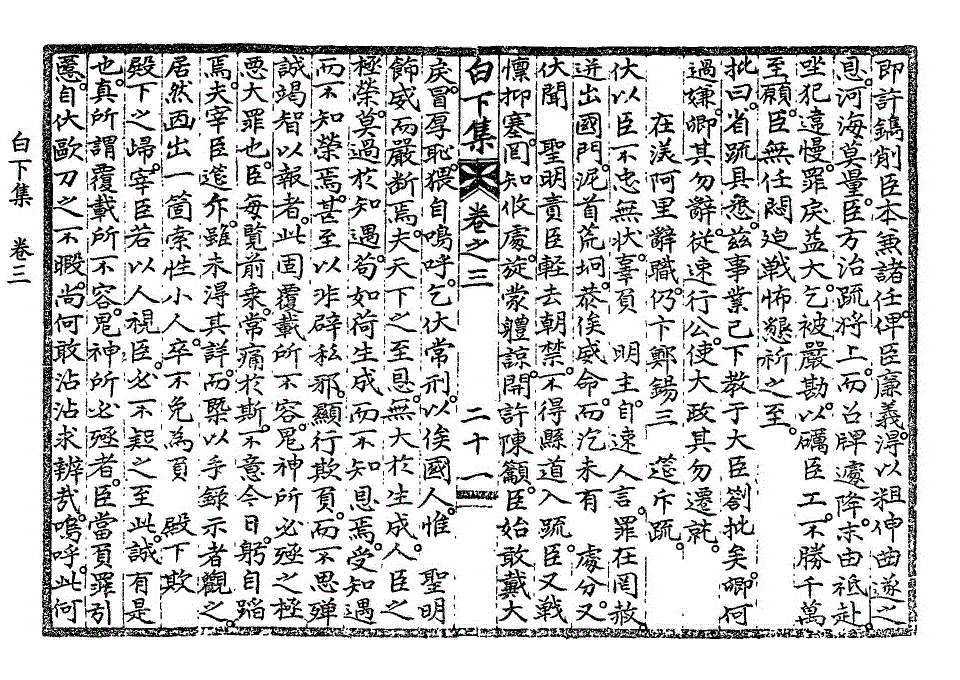 即許鐫削臣本兼諸任俾臣廉義淂以粗伸曲遂之
息河海莫量臣方治疏将上而召牌遽降末由祗赴
坐犯違慢罪戾益大乞被嚴勘以礪臣工不勝千萬
至願臣無任悶迫戰怖懇祈之至
批曰省疏具悉兹事業已下敎于大臣劄批矣卿何
過嫌卿其勿辭從速行公使大政其勿遷就
在渼阿里辭職仍下鄭錫三筵斥疏
伏以臣不忠無状辜負 明主自速人言罪在罔赦
迸出國門泥首荒坰恭俟威命而汔未有 處分又
伏聞 聖明責臣軽去朝禁不得縣道入疏臣又戰
懔抑塞罔知攸處旋蒙軆諒開許陳籲臣始敢戴大
白下集 卷之三 二十一
戾冒辱恥猥自鳴呼乞伏常刑以俟國人惟 聖明
飾威而嚴断焉夫天下之至恩無大於生成人臣之
極榮莫過於知遇苟如荷生成而不知恩焉受知遇
而不知榮焉甚至以非辟私邪顯行欺負而不思殫
誠竭智以報者此固覆載所不容鬼神所必殛之極
惡大罪也臣每覽前乗常痛於斯不意今日躬自蹈
焉夫宰臣筵斥雖未得其詳而槩以手錄示者觀之
居然画出一箇索性小人卒不免為負 殿下欺
殿下之歸宰臣若以人視臣必不疑之至此誠有是
也真所謂覆載所不容鬼神所必殛者臣當負罪引
慝自伏歐刀之不暇尚何敢沾沾求辨㦲嗚呼此何
白下集 卷三